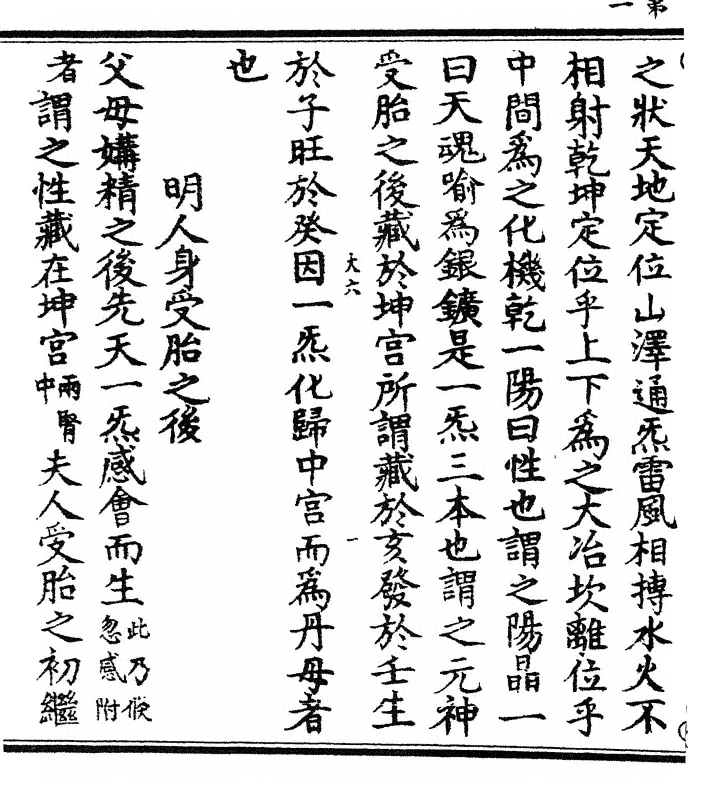 之狀天地定位山澤通炁雷風相搏水火不
相射乾坤定位乎上下爲之大冶坎離位乎
中間爲之化機乾一陽曰性也謂之陽晶一
曰天魂喻爲銀鑛是一炁三本也謂之元神
受胎之後藏於坤宮所謂藏於亥發於壬生
大六
於子旺於癸因一炁化歸中宮而爲丹母者
也
明人身受胎之後
父母媾精之後先天一炁感會而生此乃倐忽感附
者謂之性藏在坤宮兩腎中夫人受胎之初繼